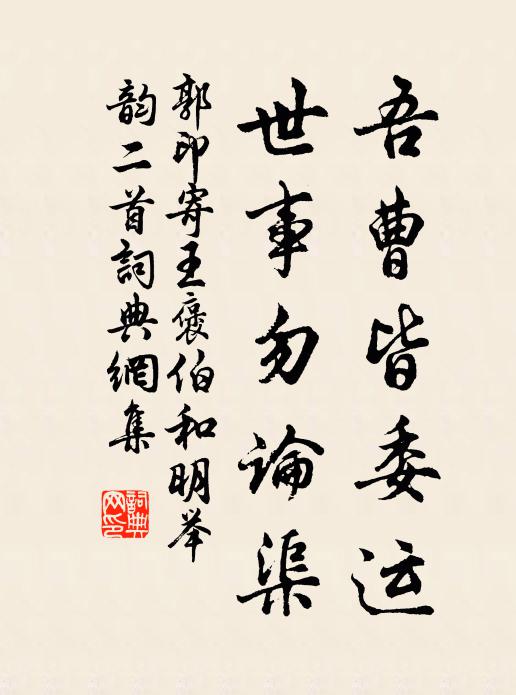 吾曹皆委运
世事勿论渠
郭印寄王褒伯和明举
韵二首詞典網集
詞典網印